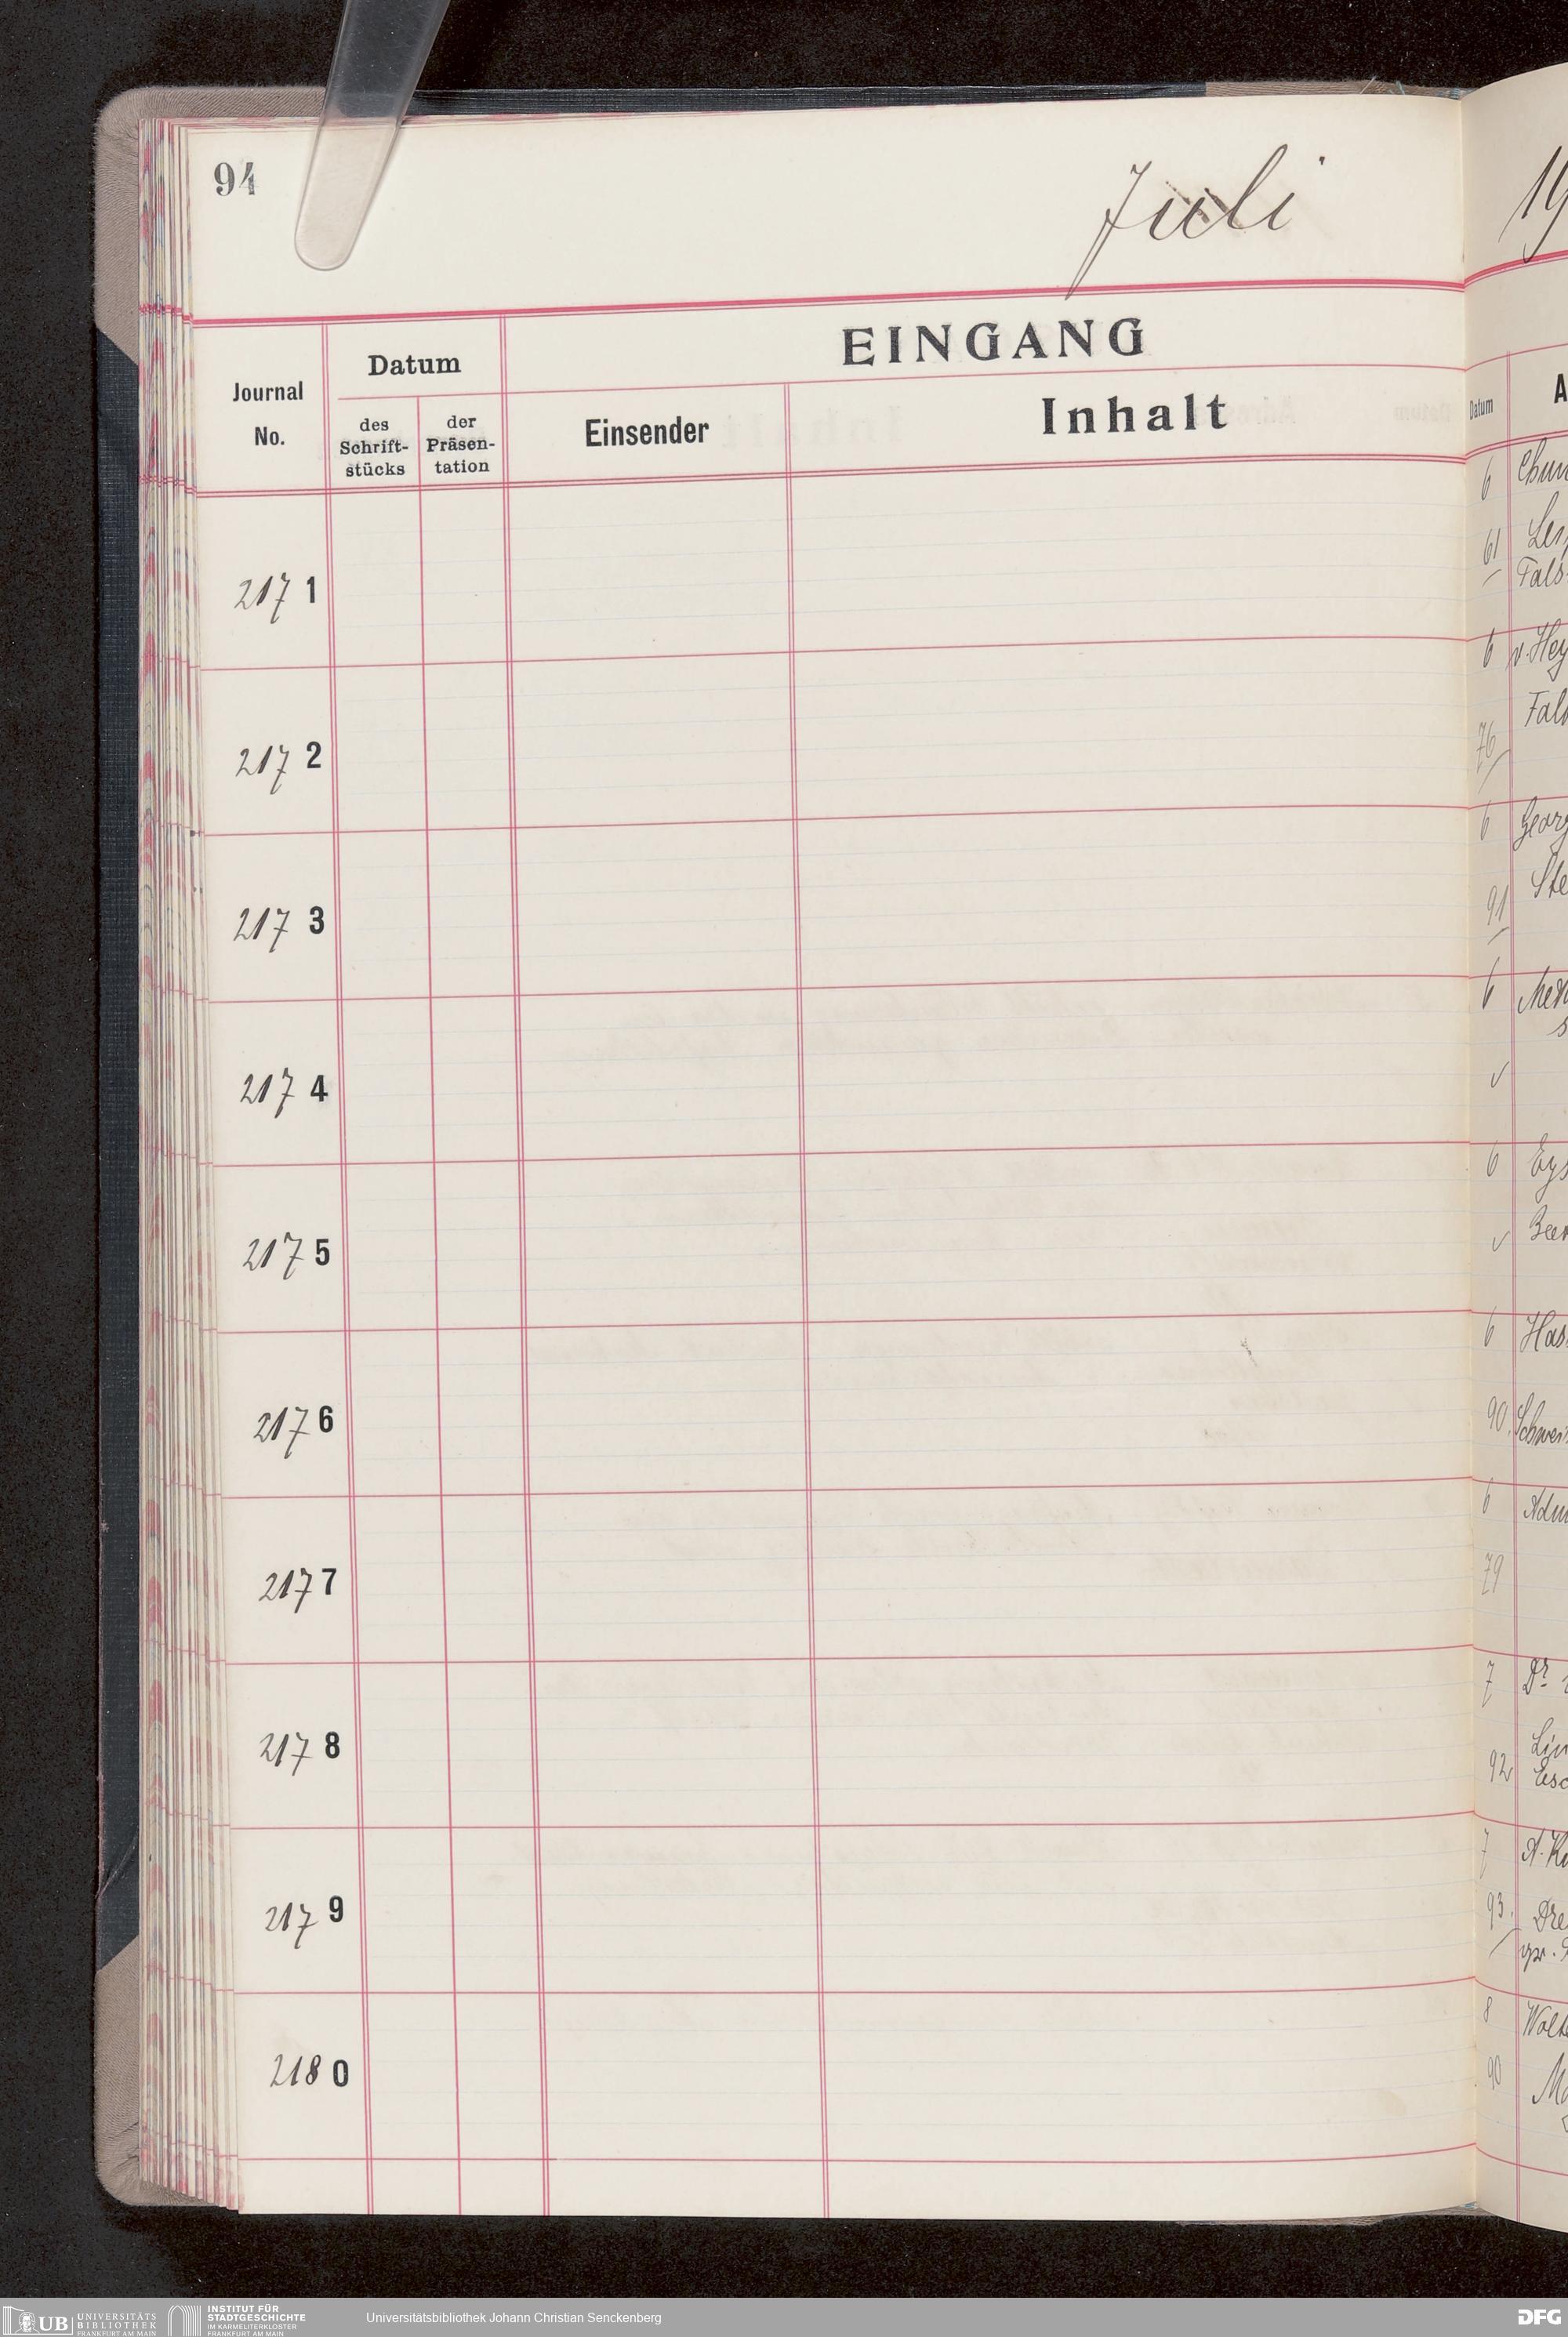 94
Juli
19
Journal
No.
Datum
des
Schrift-
stücks
der
Präsen-
tation
EINGANG
Einsender
Inhalt
Datum
A
217 1
217 2
217 3
217 4
217 5
217 6
217 7
217 8
217 9
218 0
6
61
6
v. Hey
76
6
Georg
91
6
6
6
Has
90.
6
79
7
Dr.
92
7
A. K
93.
Dre
8
90
UB
UNIVERSITÄTS
BIBLIOTHEK
FRANKFURT AM MAIN
INSTITUT FÜR
STADTGESCHICHTE
IM KARMELITERKLOSTER
FRANKFURT AM MAIN
Universitätsbibliothek Johann Christian Senckenberg
DFG